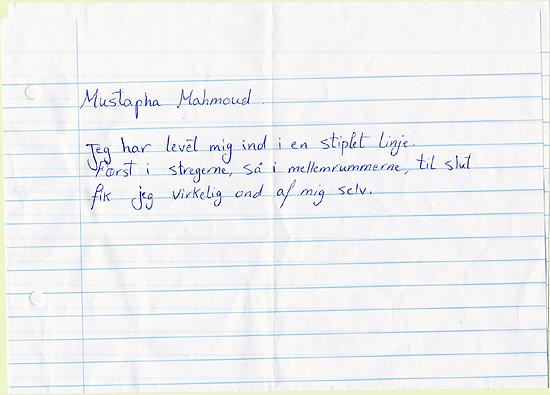 Mustapha Mahmoud.
Jeg har levet mig ind i en stiplet linje.
Først i stregerne, så i mellemrummerne, til slut
fik jeg virkelig ond af mig selv.